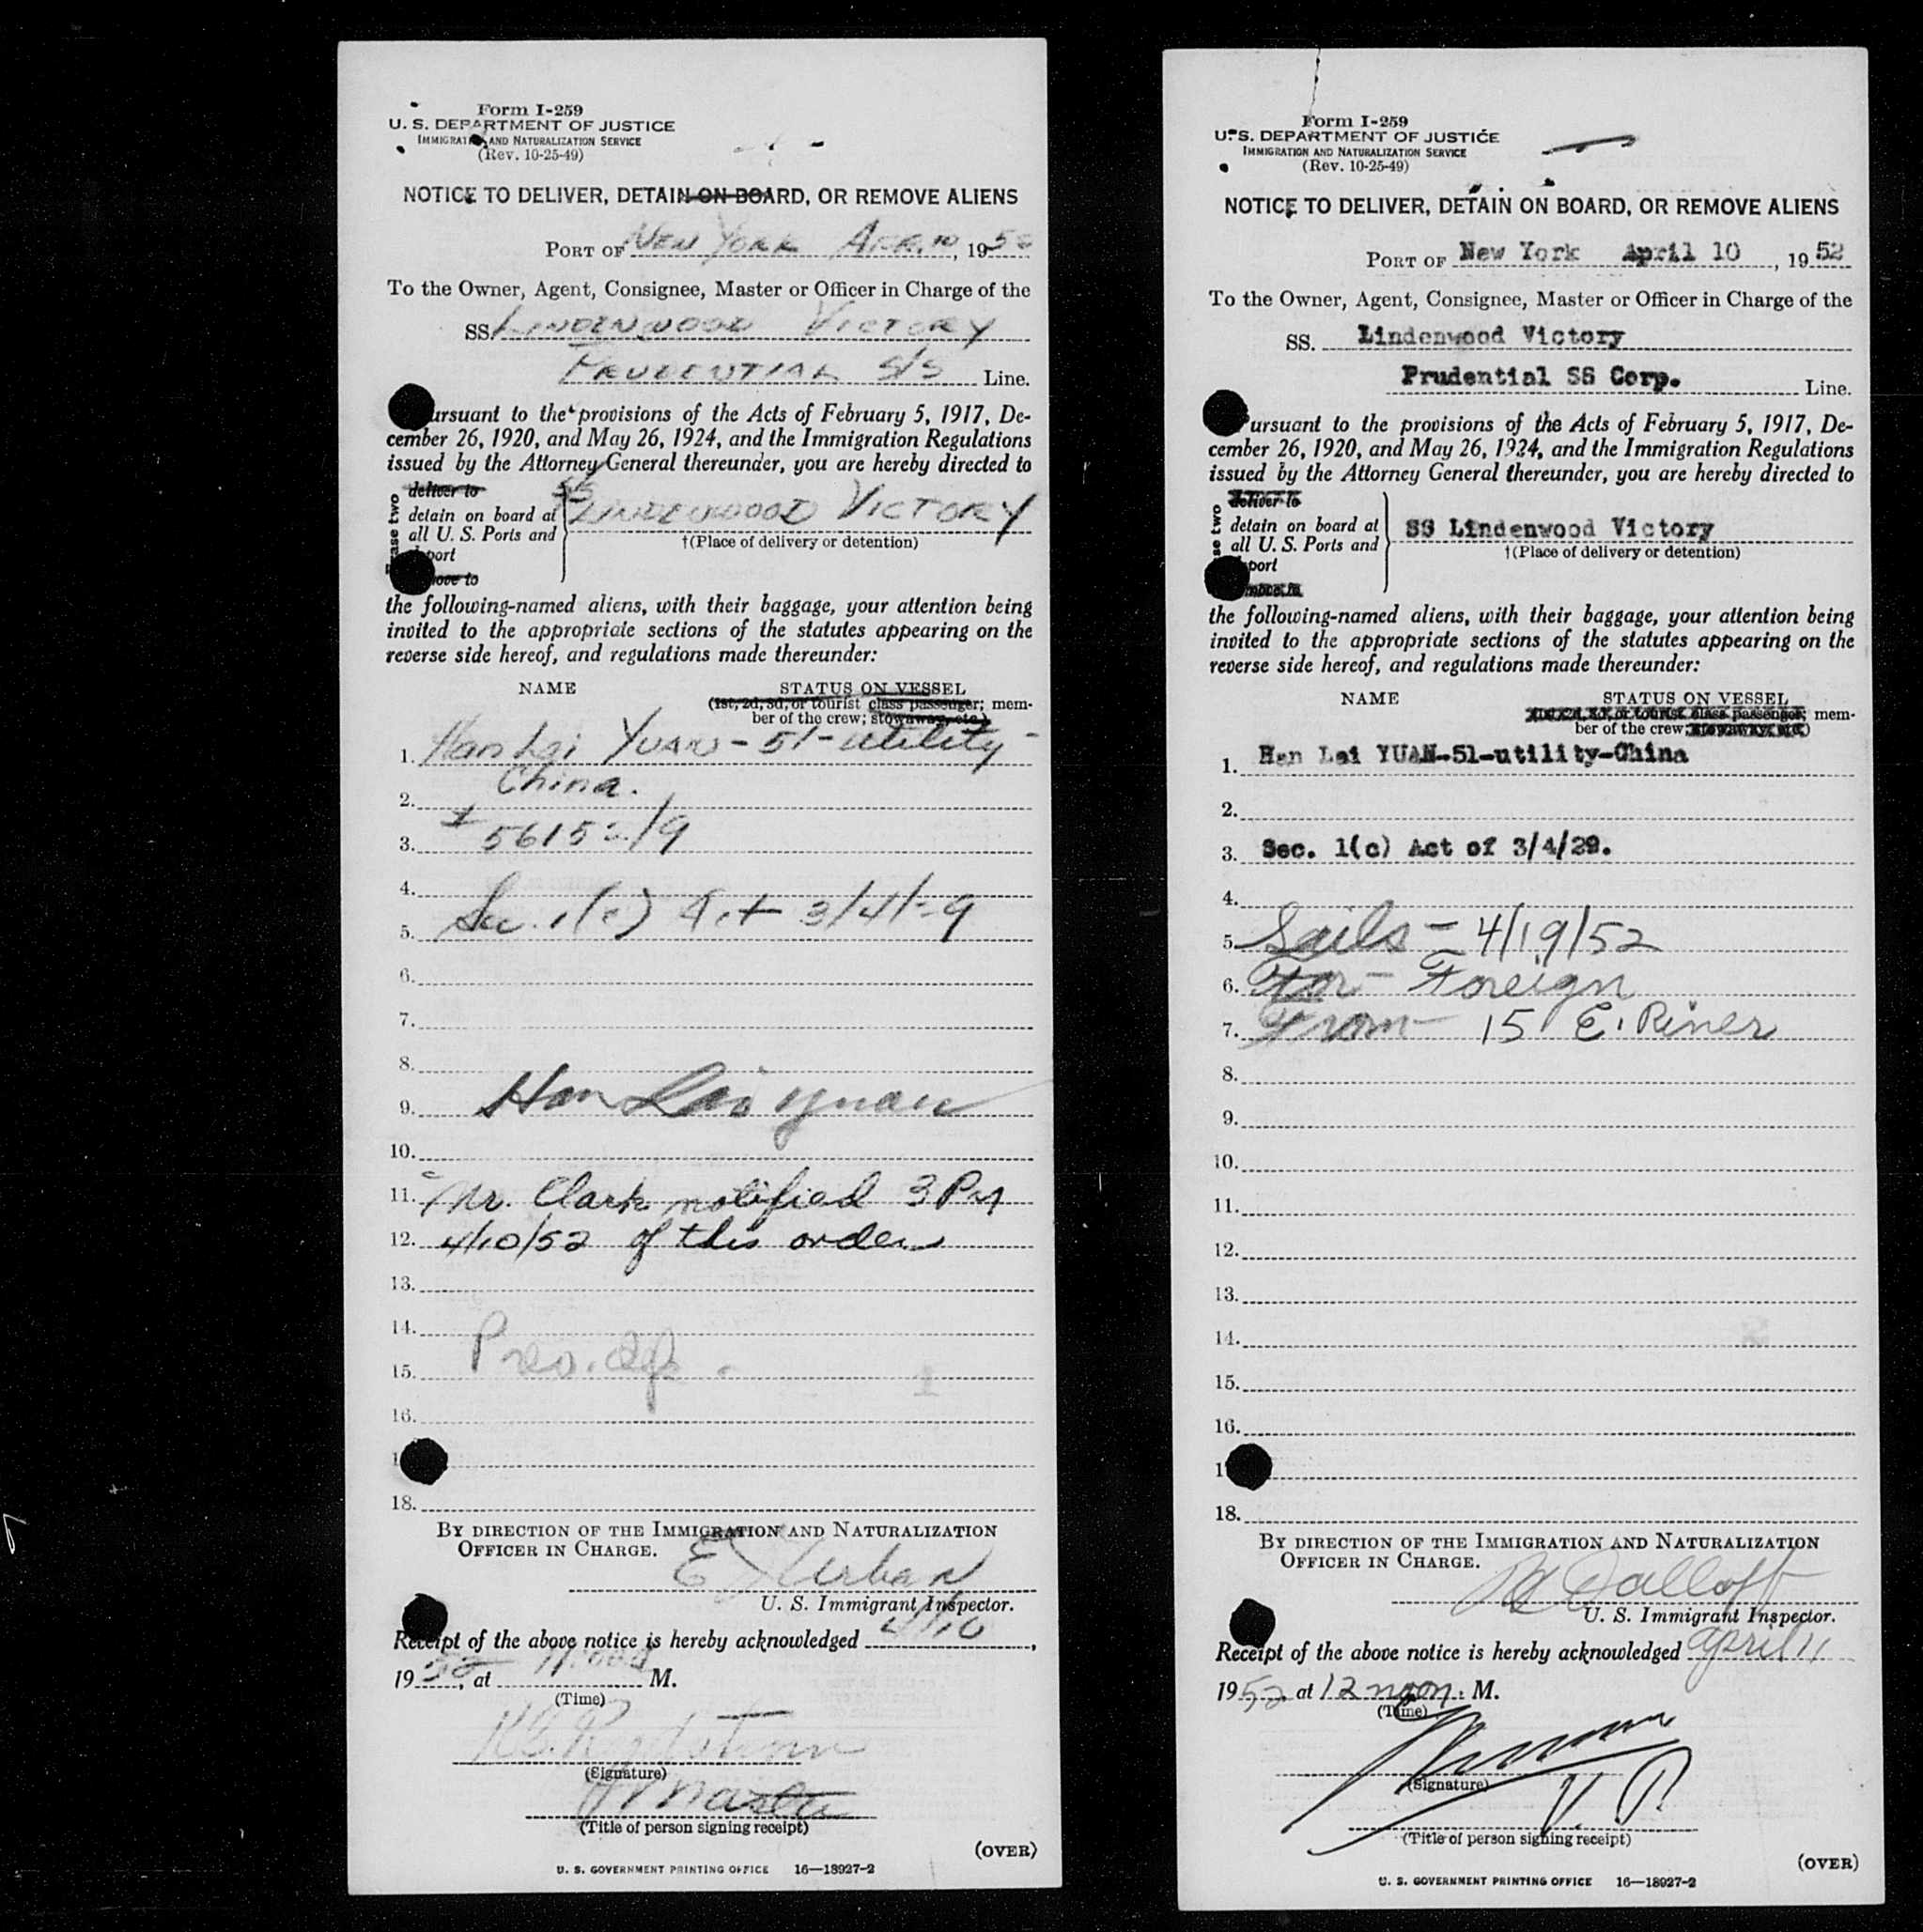 Form I-259
U. S. DEPARTMENT OF JUSTICE
IMMIGRATION AND NATURALIZATION SERVICE
(Rev. 10-25-49)
NOTICE TO DELIVER, DETAIN ON BOARD, OR REMOVE ALIENS
PORT OF NEW YORK APR. 10, 1952
To the Owner, Agent, Consignee, Master or Officer in Charge of the
SS. LINDENWOOD VICTORY
PRUDENTIAL S/S Line.
Pursuant to the provisions of the Acts of February 5, 1917, De-
cember 26, 1920, and May 26, 1924, and the Immigration Regulations
issued by the Attorney General thereunder, you are hereby directed to
deliver to
detain on board at
all U. S. Ports and
port
SS LINDENWOOD VICTORY
†(Place of delivery or detention)
the following-named aliens, with their baggage, your attention being
invited to the appropriate sections of the statutes appearing on the
reverse side hereof, and regulations made thereunder:
NAME STATUS ON VESSEL
(1st, 2d, 3d, or tourist class passenger; mem-
ber of the crew; stowaway, etc.)
1. Han Lai YUAN - 51 - utility -
China.
2.
3. 561521/9
4.
5. Sec. 1(c) Act 3/4/29
6.
7.
8.
9. Han Lai Yuan
10.
11. Mr. Clark notified 3 PM
12. 4/10/52 of this order
13.
14.
15.
16.
18.
BY DIRECTION OF THE IMMIGRATION AND NATURALIZATION
OFFICER IN CHARGE.
E Urban
U. S. Immigrant Inspector.
Receipt of the above notice is hereby acknowledged 4/10,
1952, at M.
(Time)
(Signature)
Master
(Title of person signing receipt)
(OVER)
U. S. GOVERNMENT PRINTING OFFICE 16—18927-2
Form I-259
U. S. DEPARTMENT OF JUSTICE
IMMIGRATION AND NATURALIZATION SERVICE
(Rev. 10-25-49)
NOTICE TO DELIVER, DETAIN ON BOARD, OR REMOVE ALIENS
PORT OF New York April 10, 1952
To the Owner, Agent, Consignee, Master or Officer in Charge of the
SS. Lindenwood Victory
Prudential SS Corp. Line.
Pursuant to the provisions of the Acts of February 5, 1917, De-
cember 26, 1920, and May 26, 1924, and the Immigration Regulations
issued by the Attorney General thereunder, you are hereby directed to
deliver to
detain on board at
all U. S. Ports and
port
SS Lindenwood Victory
†(Place of delivery or detention)
the following-named aliens, with their baggage, your attention being
invited to the appropriate sections of the statutes appearing on the
reverse side hereof, and regulations made thereunder:
NAME STATUS ON VESSEL
(1st, 2d, 3d, or tourist class passenger; mem-
ber of the crew; stowaway, etc.)
1. Han Lai YUAN-51-utility-China
2.
3. Sec. 1(c) Act of 3/4/29.
4.
5. Sails - 4/19/52
6. For - Foreign
7. From - 15 E. River
8.
9.
10.
11.
12.
13.
14.
15.
16.
18.
BY DIRECTION OF THE IMMIGRATION AND NATURALIZATION
OFFICER IN CHARGE.
U. S. Immigrant Inspector.
Receipt of the above notice is hereby acknowledged April 11
1952 at 12 noon. M.
(Time)
(Signature)
V. P.
(Title of person signing receipt)
(OVER)
U. S. GOVERNMENT PRINTING OFFICE 16—18927-2